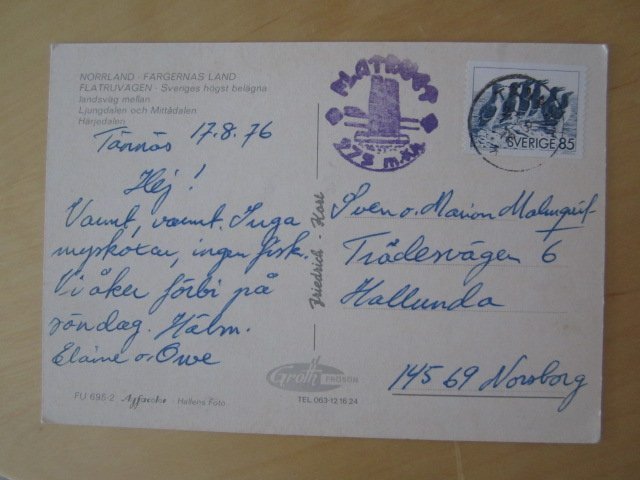 NORRLAND - FÄRGERNAS LAND
FLATRUVÄGEN - Sveriges högst belägna
landsväg mellan
Ljungdalen och Mittådalen
Härjedalen
Tännäs 17.8.76
Hej!
Varmt, varmt. Inga
myskoxar, ingen fisk.
Vi åker förbi på
söndag. Hälsn.
Elaine o. Owe
FU 695-2 Agfacolor - Hallens Foto
Friedrich - Karl
Groth
FRÖSÖN
TEL 063-12 16 24
FLATRUET
975 m.ö.h.
SVERIGE 85
Sven o. Marion Malmquist
Trädesvägen 6
Hallunda
145 69 Norsborg